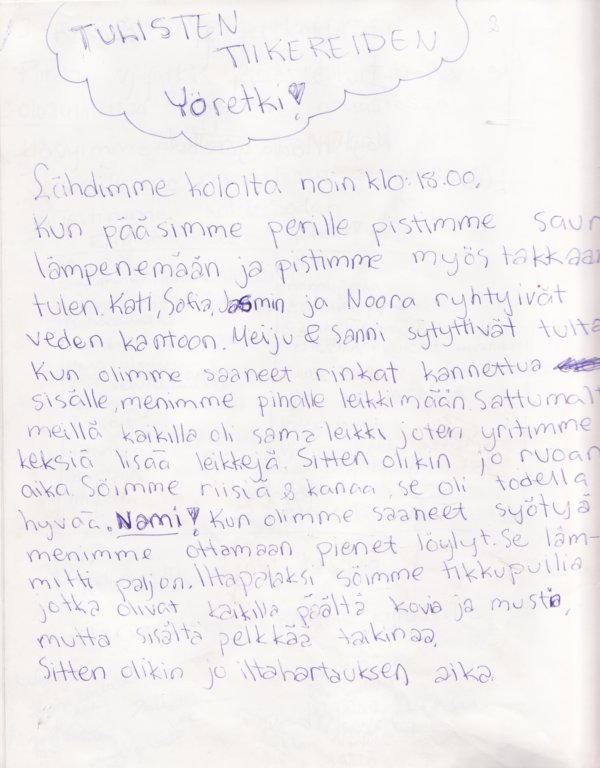 2
TULISTEN
TIIKEREIDEN
Yöretki!
Lähdimme kololta noin klo: 18.00.
Kun pääsimme perille pistimme saun
lämpenemään ja pistimme myös takkaan
tulen. Kati, Sofia, Jasmin ja Noora ryhtyivät
veden kantoon. Meiju & Sanni sytyttivät tulta
Kun olimme saaneet rinkat kannettua
sisälle, menimme pihalle leikkimään. Sattumalt
meillä kaikilla oli sama leikki joten yritimme
keksiä lisää leikkejä. Sitten olikin jo ruoan
aika. Söimme riisiä & kanaa, se oli todella
hyvää. Nami! Kun olimme saaneet syötyä
menimme ottamaan pienet löylyt. Se läm-
mitti paljon. Iltapalaksi söimme tikkupullia
jotka olivat kaikilla päältä kovia ja mustia,
mutta sisältä pelkkää taikinaa.
Sitten olikin jo iltahartauksen aika.